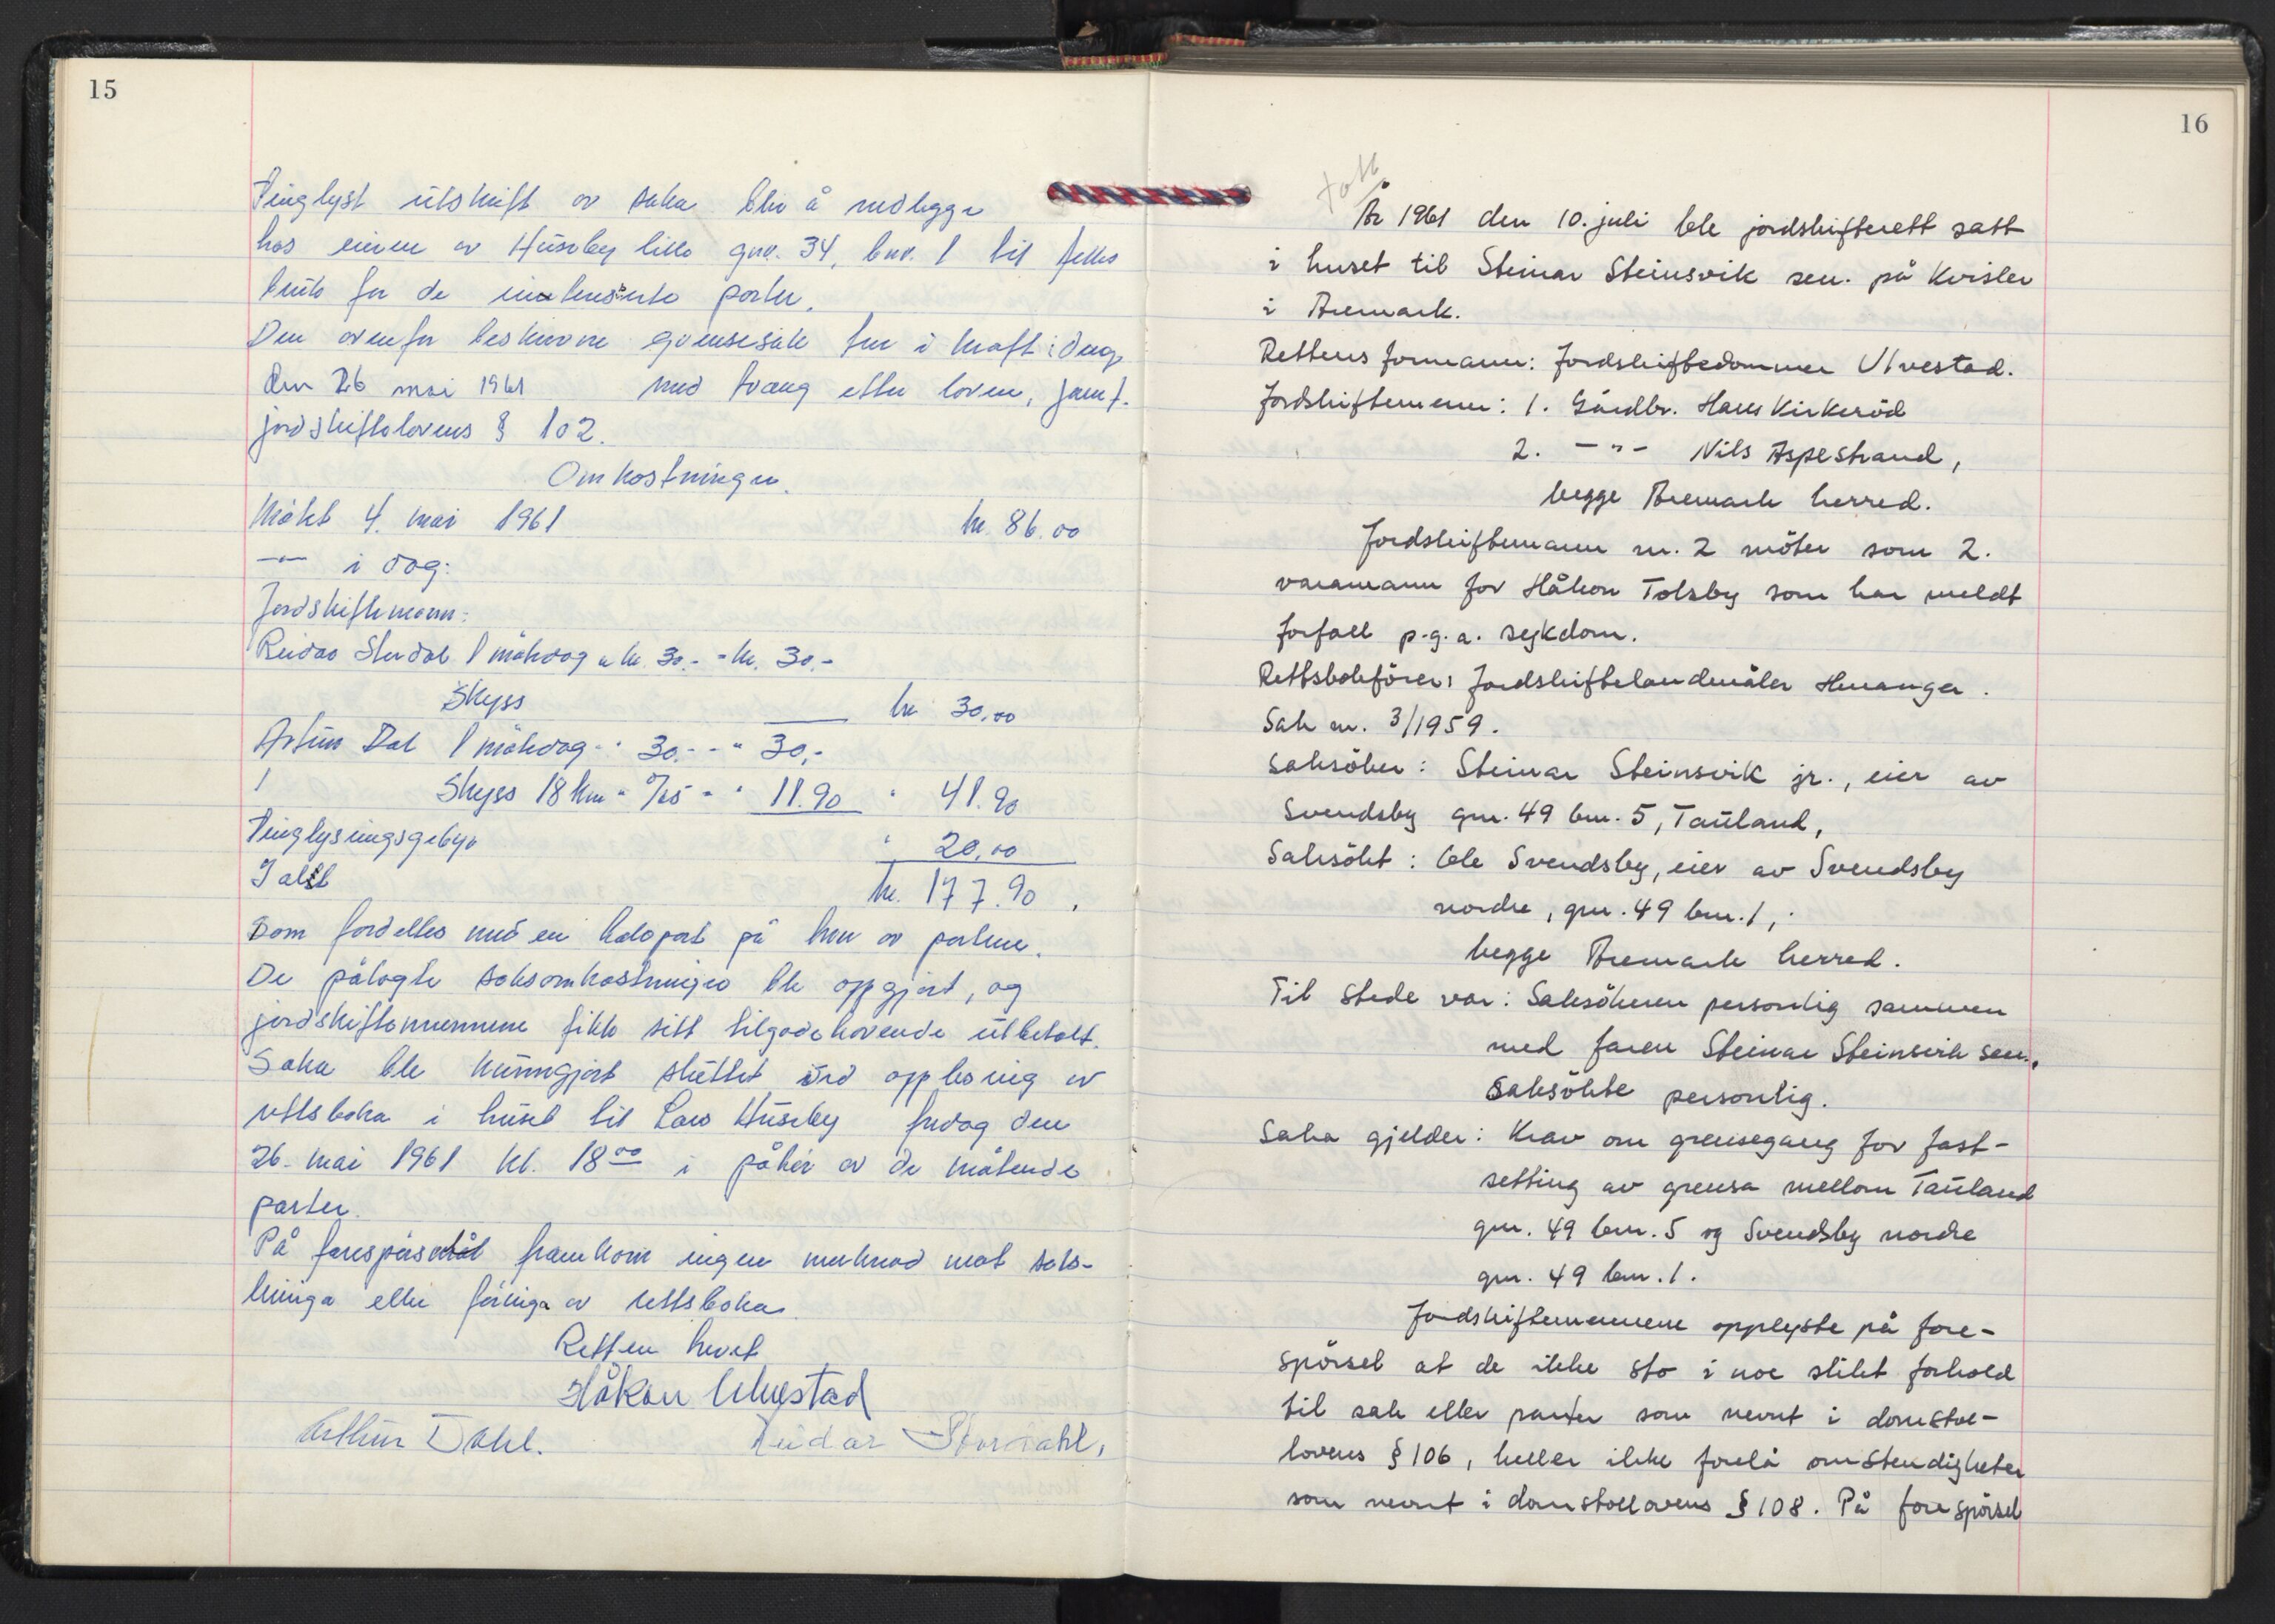 15
Tinglyst utskrift av saka blir å nedlegge
hos eieren av Huseby lille gnr. 34, bnr. 1 til felles
bruk for de interesserte parter.
Den ovenfor beskrevne grensesak trer i kraft i dag
den 26 mai 1961 med tvang etter loven, jamf.
jordskiftelovens § 102.
Omkostninger.
Møtet 4. mai 1961 kr. 86.00
—"— i dag:
Jordskiftemenn:
Reidar Stordal 1 møtedag a kr. 30.- = kr. 30.-
Skyss kr 30,00
Artur Dal 1 møtedag - " 30.- - " 30,-
Skyss 18 km " 0/65 - " 11.90 " 41.90
Tinglysingsgebyr " 20,00
I alt kr. 177.90.
som fordeltes med en halvpart på hver av partene.
De pålagte saksomkostninger ble oppgjort, og
jordskiftemennene fikk sitt tilgodehavende utbetalt.
Saka ble kunngjort sluttet ved opplesning av
rettsboka i huset til Lars Huseby fredag den
26. mai 1961 kl. 18 00 i påhør av de møtende
parter.
På forespørsel framkom ingen merknad mot saks-
behandlinga eller føringa av rettsboka.
Retten hevet
Håkon Ulvestad
Arthur Dahl. Reidar Stordahl,
16
År 1961 den 10. juli ble jordskifterett satt
i huset til Steinar Steinsvik sen. på Kvisler
i Aremark.
Rettens formann: Jordskiftedommer Ulvestad.
Jordskiftemenn: 1. Gårdbr. Hans Kirkeröd
2. — " — Nils Aspestrand,
begge Aremark herred.
Jordskiftemann nr. 2 möter som 2.
varamann for Håkon Tolsby som har meldt
forfall p.g.a. sykdom.
Rettsbokförer: Jordskiftelandmåler Henanger.
Sak nr. 3/1959.
Saksöker: Steinar Steinsvik jr., eier av
Svendsby gnr. 49 bnr. 5, Tauland,
Saksökt: Ole Svendsby, eier av Svendsby
nordre, gnr. 49 bnr. 1,
begge Aremark herred.
Til stede var: Saksökeren personlig sammen
med faren Steinar Steinsvik sen.,
Saksökte personlig.
Saka gjelder: Krav om grensegang for fast-
setting av grensa mellom Tauland
gnr. 49 bnr. 5 og Svendsby nordre
gnr. 49 bnr. 1.
Jordskiftemennene opplyste på fore-
spörsel at de ikke sto i noe slikt forhold
til sak eller parter som nevnt i domstol-
lovens § 106, heller ikke forelå omstendigheter
som nevnt i domstollovens § 108. På forespörsel